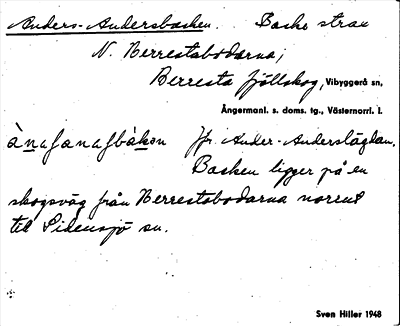 Anders-Andersbacken. Backe strax
N. Berrestabodarna,
Berresta fjällskog, Vibyggerå sn,
Ångermanl. s. doms. tg., Västernorrl. l.
ànasanasbàkən Jfr Ander-Anderslägdan.
Backen ligger på en
skogsväg från Berrestabodarna norrut
till Sidensjö sn.
Sven Hiller 1948